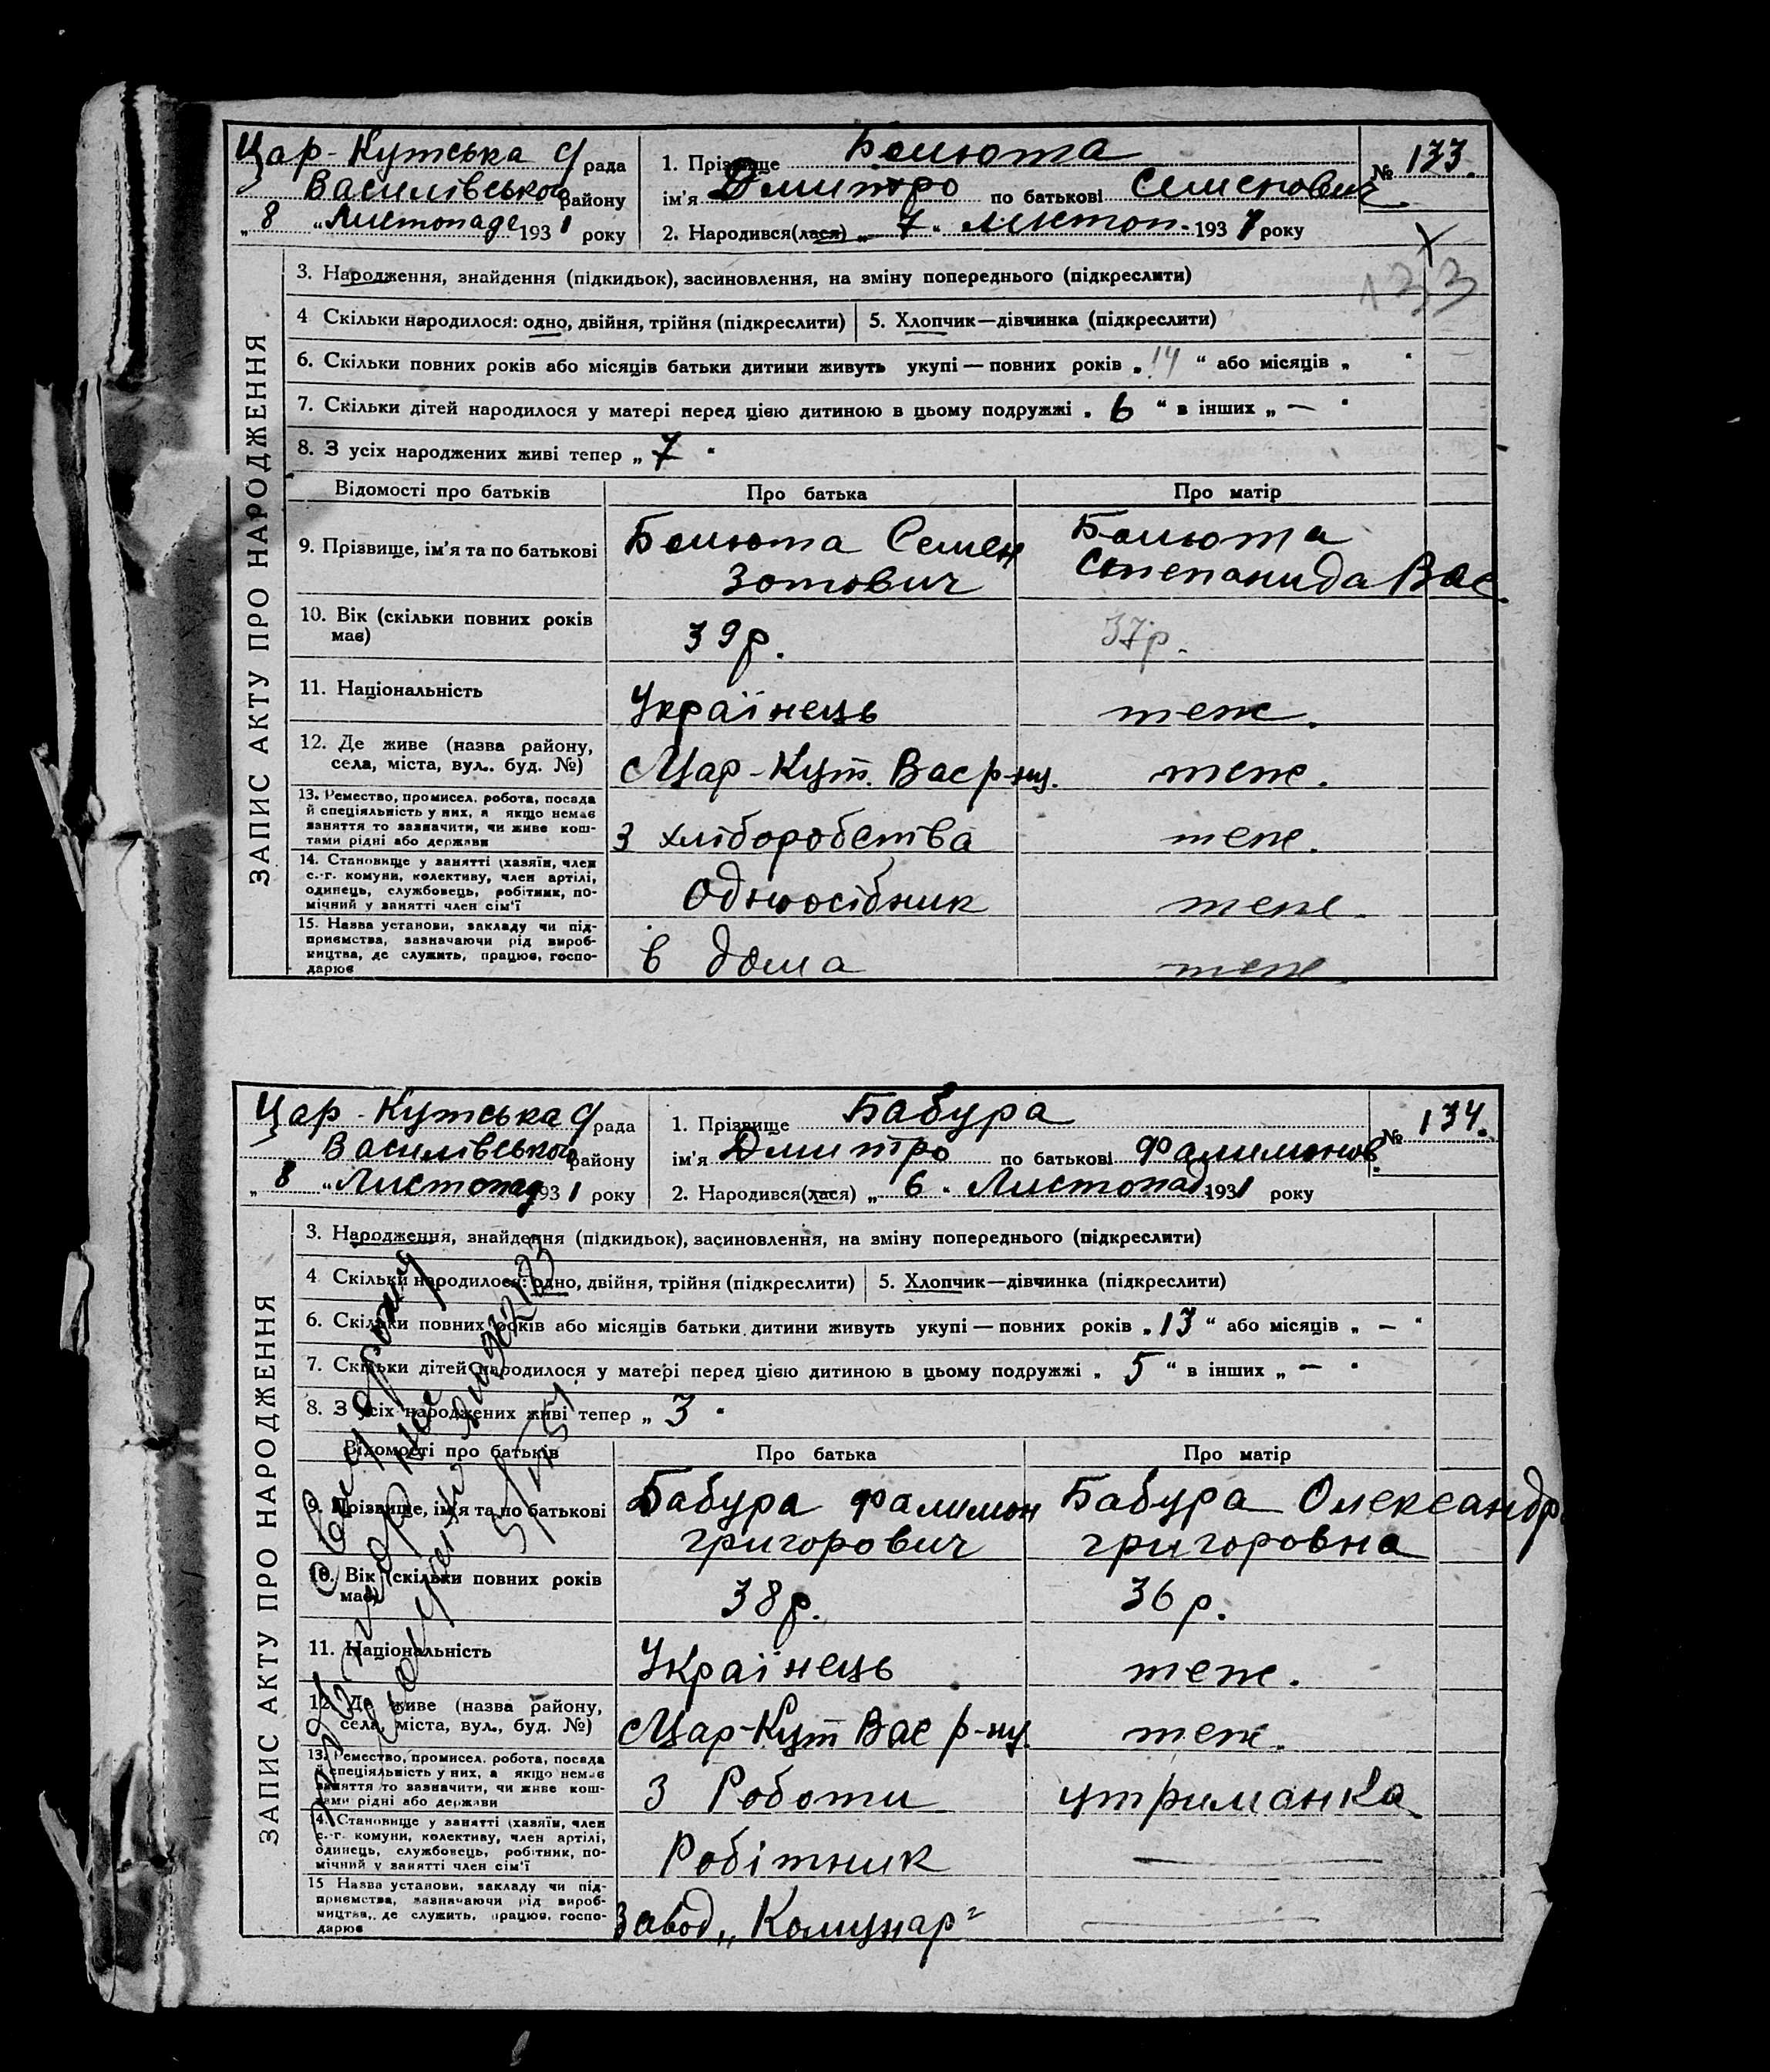 Цар-Кутська с/рада
Василівського району
„8“ Листопаде 1931 року
1. Прізвище Белюта
ім'я Дмитро по батькові Семенович
№ 133.
2. Народився(лася) „7“ Листоп. 1931 року
133
ЗАПИС АКТУ ПРО НАРОДЖЕННЯ
3. Народження, знайдення (підкидьок), засиновлення, на зміну попереднього (підкреслити)
4 Скільки народилося: одно, двійня, трійня (підкреслити) 5. Хлопчик—дівчинка (підкреслити)
6. Скільки повних років або місяців батьки дитини живуть укупі — повних років „14“ або місяців „ “
7. Скільки дітей народилося у матері перед цією дитиною в цьому подружжі „6“ в інших „—“
8. З усіх народжених живі тепер „7“
Відомості про батьків Про батька Про матір
9. Прізвище, ім'я та по батькові Белюта Семен Зотович Белюта Степанида Вас.
10. Вік (скільки повних років має) 39 р. 37 р.
11. Національність Українець теж.
12. Де живе (назва району, села, міста, вул., буд. №) с Цар-Кут. Вас р-ну. теж.
13. Ремество, промисел, робота, посада й спеціяльність у них, а якщо немає заняття то зазначити, чи живе коштами рідні або держави З хліборобства теж.
14. Становище у занятті (хазяїн, член с.-г. комуни, колективу, член артілі, одинець, службовець, робітник, помічний у занятті член сім'ї Одноосібник теж.
15. Назва установи, закладу чи підприємства, зазначаючи рід виробництва, де служить, працює, господарює в дома теж
Цар-Кутська с/рада
Василівського району
„8“ Листопад 1931 року
1. Прізвище Бабура
ім'я Дмитро по батькові Фалимонов.
№ 134.
2. Народився(лася) „6“ Листопад. 1931 року
ЗАПИС АКТУ ПРО НАРОДЖЕННЯ
3. Народження, знайдення (підкидьок), засиновлення, на зміну попереднього (підкреслити)
4 Скільки народилося: одно, двійня, трійня (підкреслити) 5. Хлопчик—дівчинка (підкреслити)
6. Скільки повних років або місяців батьки дитини живуть укупі — повних років „13“ або місяців „—“
7. Скільки дітей народилося у матері перед цією дитиною в цьому подружжі „5“ в інших „—“
8. З усіх народжених живі тепер „3“
Відомості про батьків Про батька Про матір
9. Прізвище, ім'я та по батькові Бабура Фалимон Григорович Бабура Олександр. Григоровна
10. Вік (скільки повних років має) 38 р. 36 р.
11. Національність Українець теж.
12. Де живе (назва району, села, міста, вул., буд. №) с Цар-Кут Вас р-ну. теж.
13. Ремество, промисел, робота, посада й спеціяльність у них, а якщо немає заняття то зазначити, чи живе коштами рідні або держави З Роботи утриманка
14. Становище у занятті (хазяїн, член с.-г. комуни, колективу, член артілі, одинець, службовець, робітник, помічний у занятті член сім'ї Робітник
15 Назва установи, закладу чи підприємства, зазначаючи рід виробництва, де служить, працює, господарює Завод „Комунар"